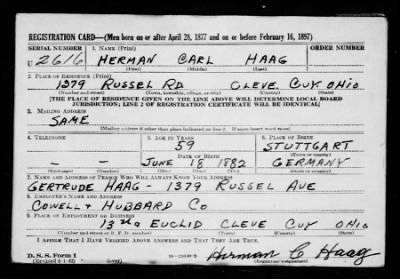 REGISTRATION CARD—(Men born on or after April 28, 1877 and on or before February 16, 1897)
SERIAL NUMBER 1. NAME (Print) ORDER NUMBER
U 2616 HERMAN CARL HAAG
(First) (Middle) (Last)
2. PLACE OF RESIDENCE (Print)
1379 RUSSEL RD CLEVE. CUY OHIO.
(Number and street) (Town, township, village, or city) (County) (State)
[THE PLACE OF RESIDENCE GIVEN ON THE LINE ABOVE WILL DETERMINE LOCAL BOARD
JURISDICTION; LINE 2 OF REGISTRATION CERTIFICATE WILL BE IDENTICAL]
3. MAILING ADDRESS
SAME
[Mailing address if other than place indicated on line 2. If same insert word same]
4. TELEPHONE 5. AGE IN YEARS 6. PLACE OF BIRTH
59 STUTTGART
DATE OF BIRTH (Town or county)
- - JUNE 18 1882 GERMANY
(Exchange) (Number) (Mo.) (Day) (Yr.) (State or country)
7. NAME AND ADDRESS OF PERSON WHO WILL ALWAYS KNOW YOUR ADDRESS
GERTRUDE HAAG - 1379 RUSSEL AVE
8. EMPLOYER'S NAME AND ADDRESS
COWELL & HUBBARD CO
9. PLACE OF EMPLOYMENT OR BUSINESS
EUCLID CLEVE CUY OHIO
(Number and street or R. F. D. number) (Town) (County) (State)
I AFFIRM THAT I HAVE VERIFIED ABOVE ANSWERS AND THAT THEY ARE TRUE.
D. S. S. Form 1
Herman C Haag